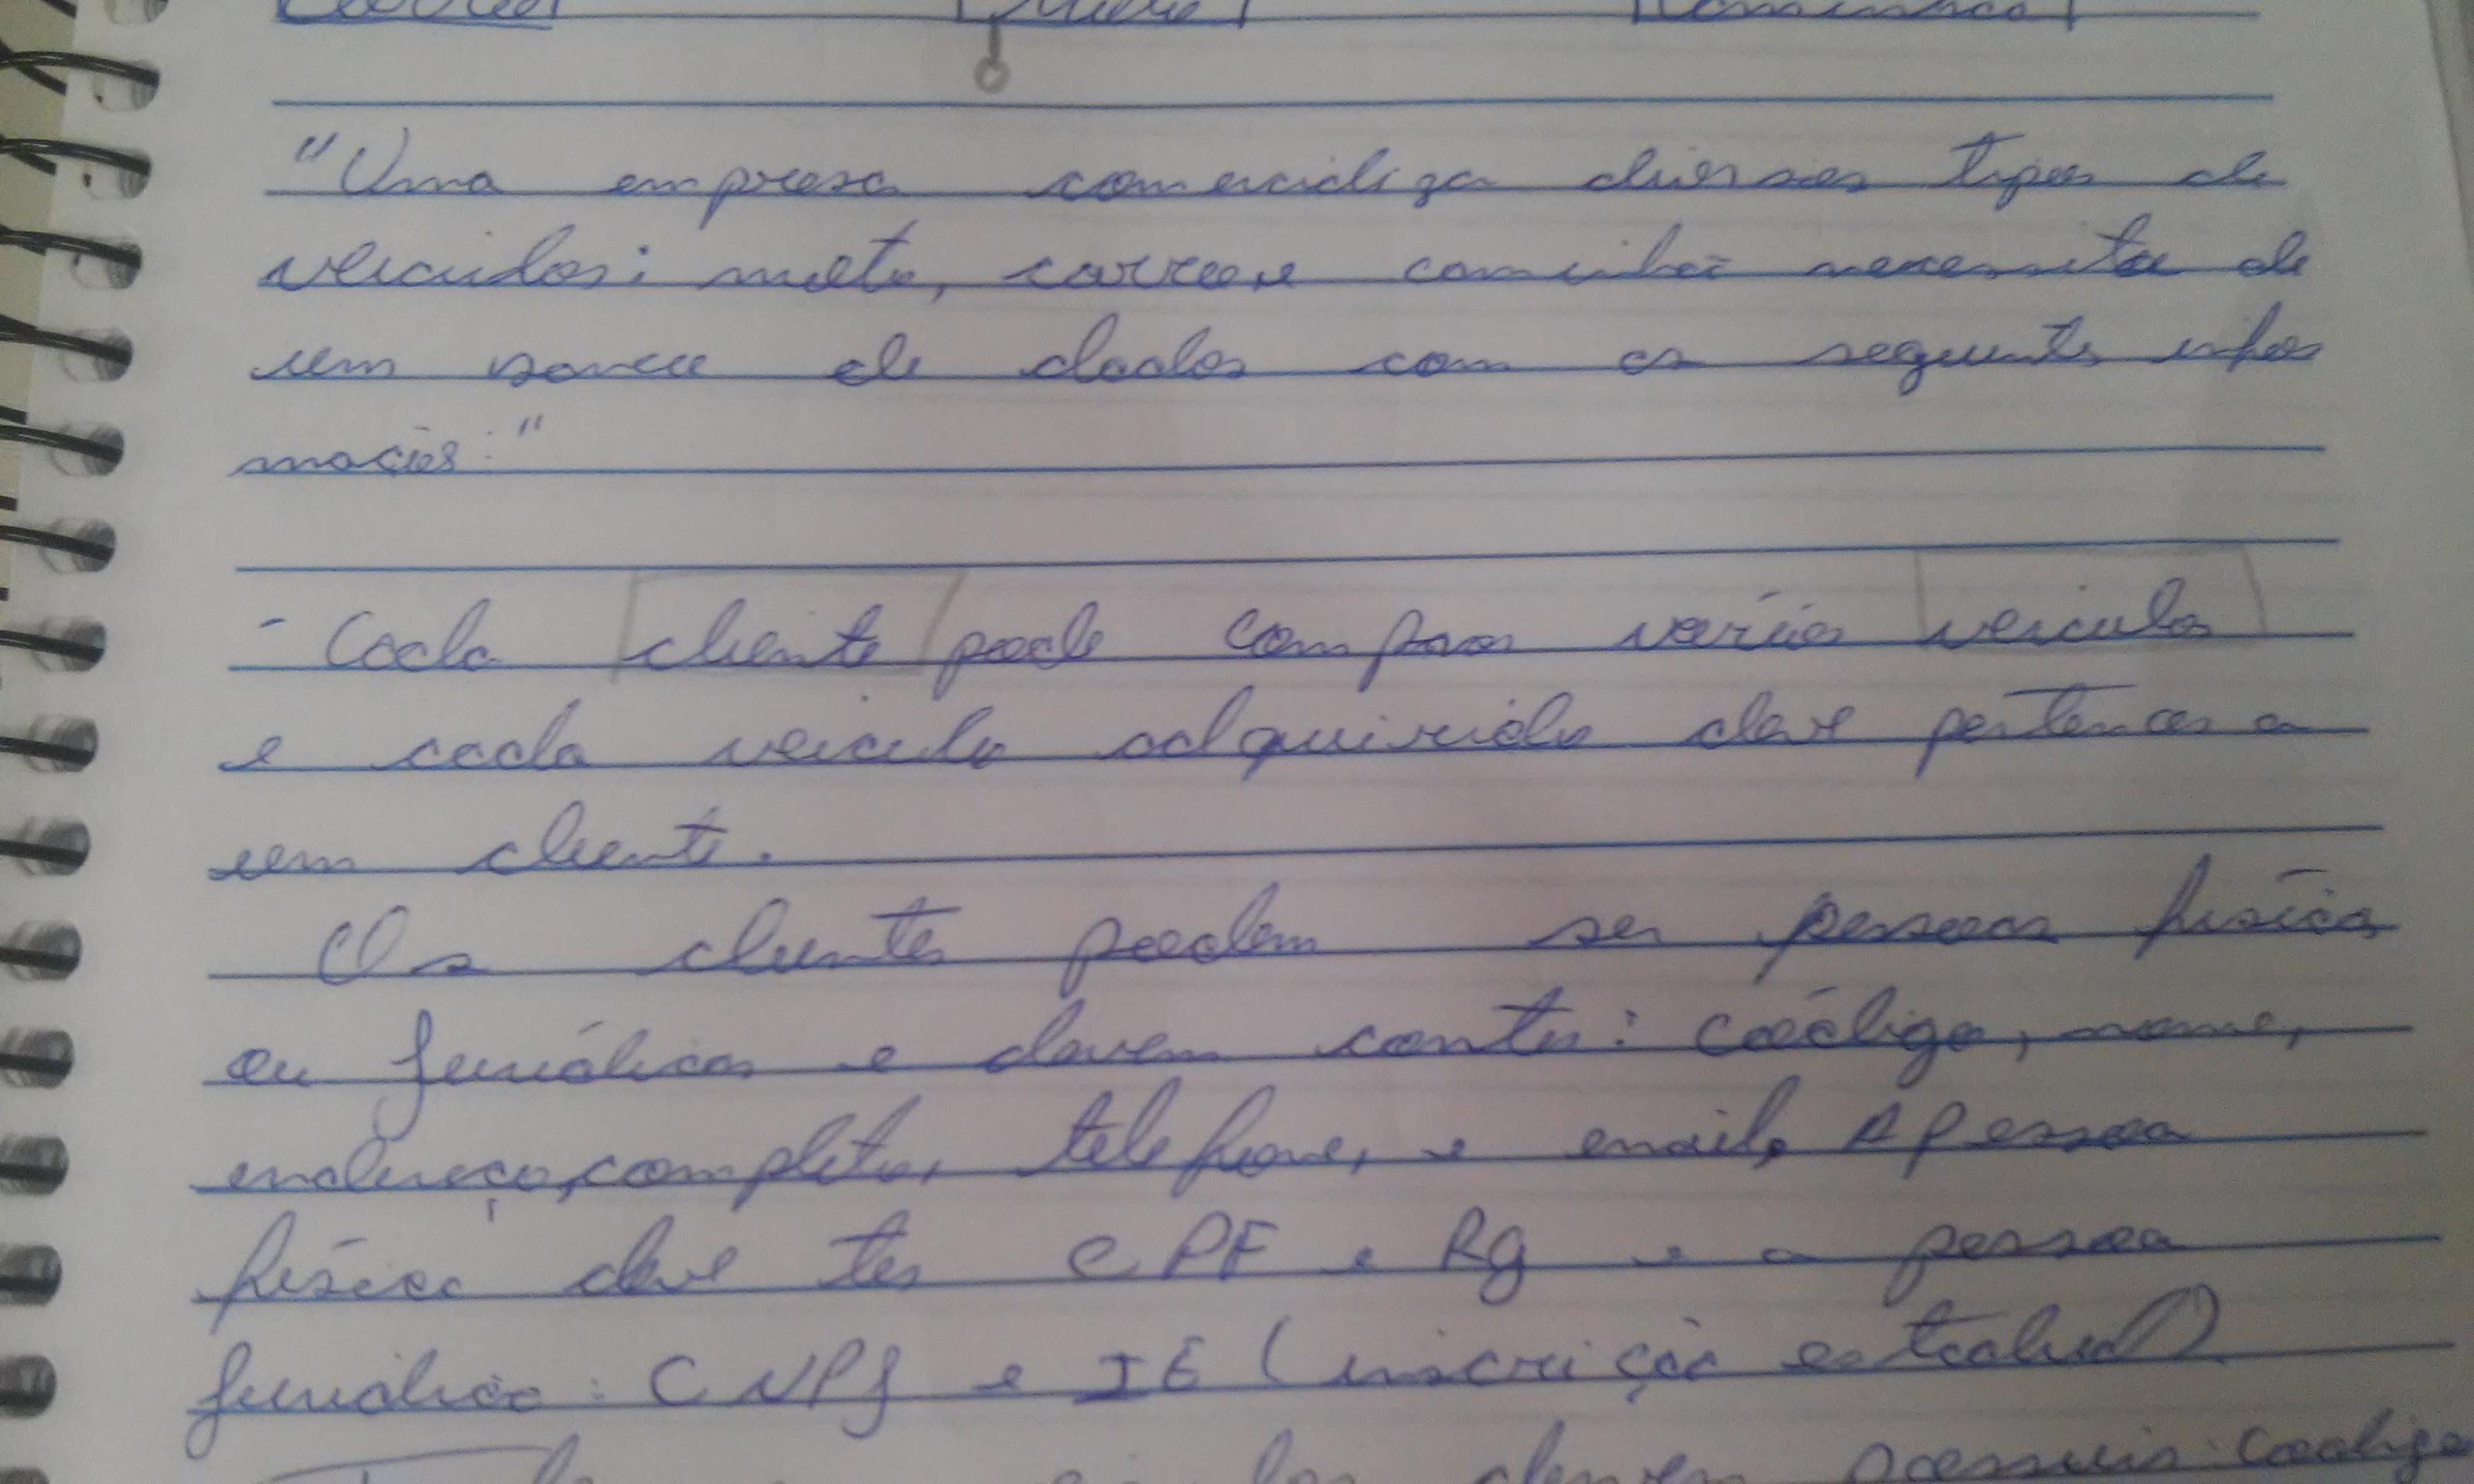 "Uma empresa comercializa diversos tipos de
veiculos: moto, carro, e caminhão necessita de
um banco de dados com as seguintes infor
mações:"
- Cada cliente pode comprar vários veiculos
e cada veiculo adquirido deve pertencer a
um cliente.
Os clientes podem ser pessoas física
ou jurídicas e devem conter: código, nome,
endereço, completo, telefone, e email, A pessoa
física deve ter CPF e Rg e a pessoa
jurídica: CNPJ e IE (inscrição estadual)
devem possuir: Codigo